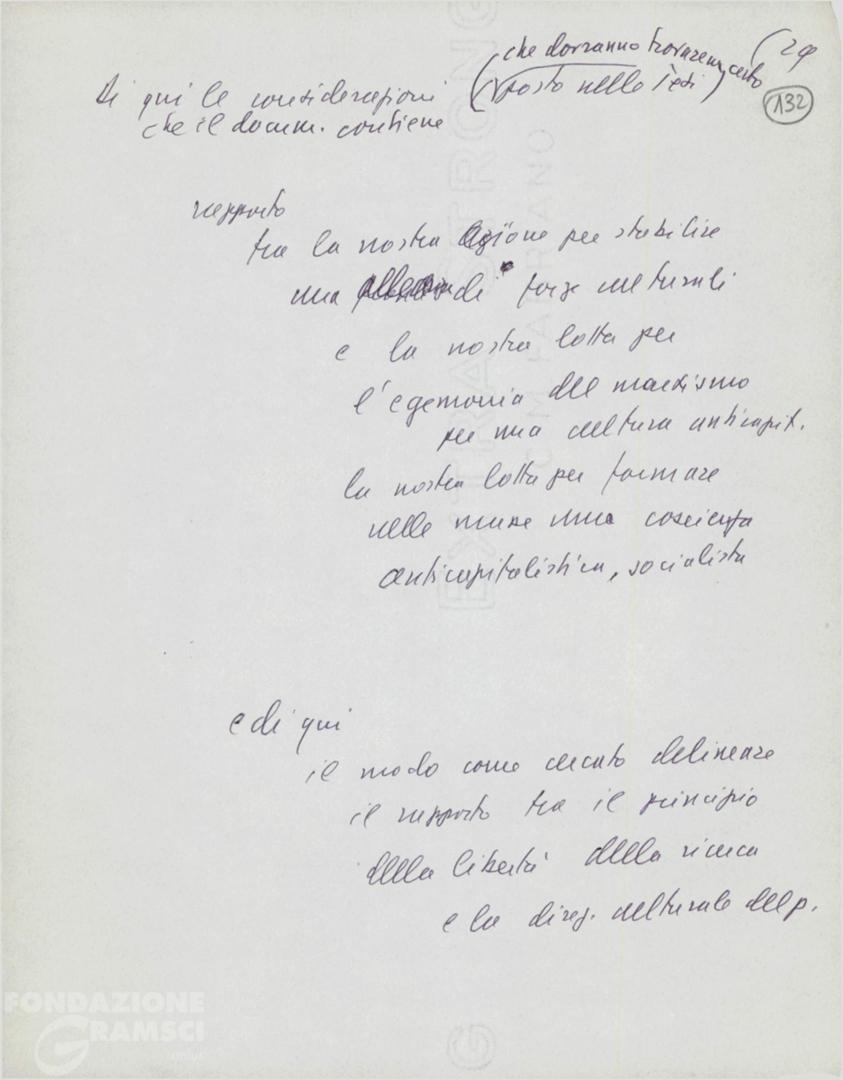 (29
132
Di qui le considerazioni (che dovranno trovare un certo
che il docum. contiene posto nelle Tesi)
rapporto
tra la nostra azione per stabilire
una di forze culturali
e la nostra lotta per
l'egemonia del marxismo
per una cultura anticapit.
la nostra lotta per formare
nelle masse una coscienza
anticapitalistica, socialista
e di qui
il modo come cercato delineare
il rapporto tra il principio
della libertà della ricerca
e la direz. culturale del p.
EXTRA STRONG
GM FABRIANO
FONDAZIONE
GRAMSCI
G